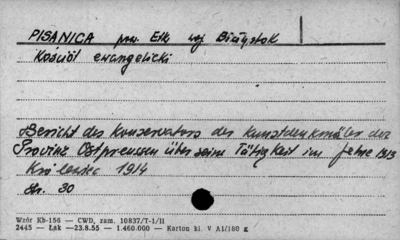 PISANICA pow. Ełk woj. Białystok
Kościół ewangelicki
Bericht des Konservators der Kunstdenkmäler der
Provinz Ostpreussen über seine Tätigkeit im Jahre 1913
1914
str. 30
Wzór Kb-156 — CWD, zam. 10837/T-1/II
2445 — Łąk —23.8.55 — 1.460.000 — Karton kl. V A1/180 g